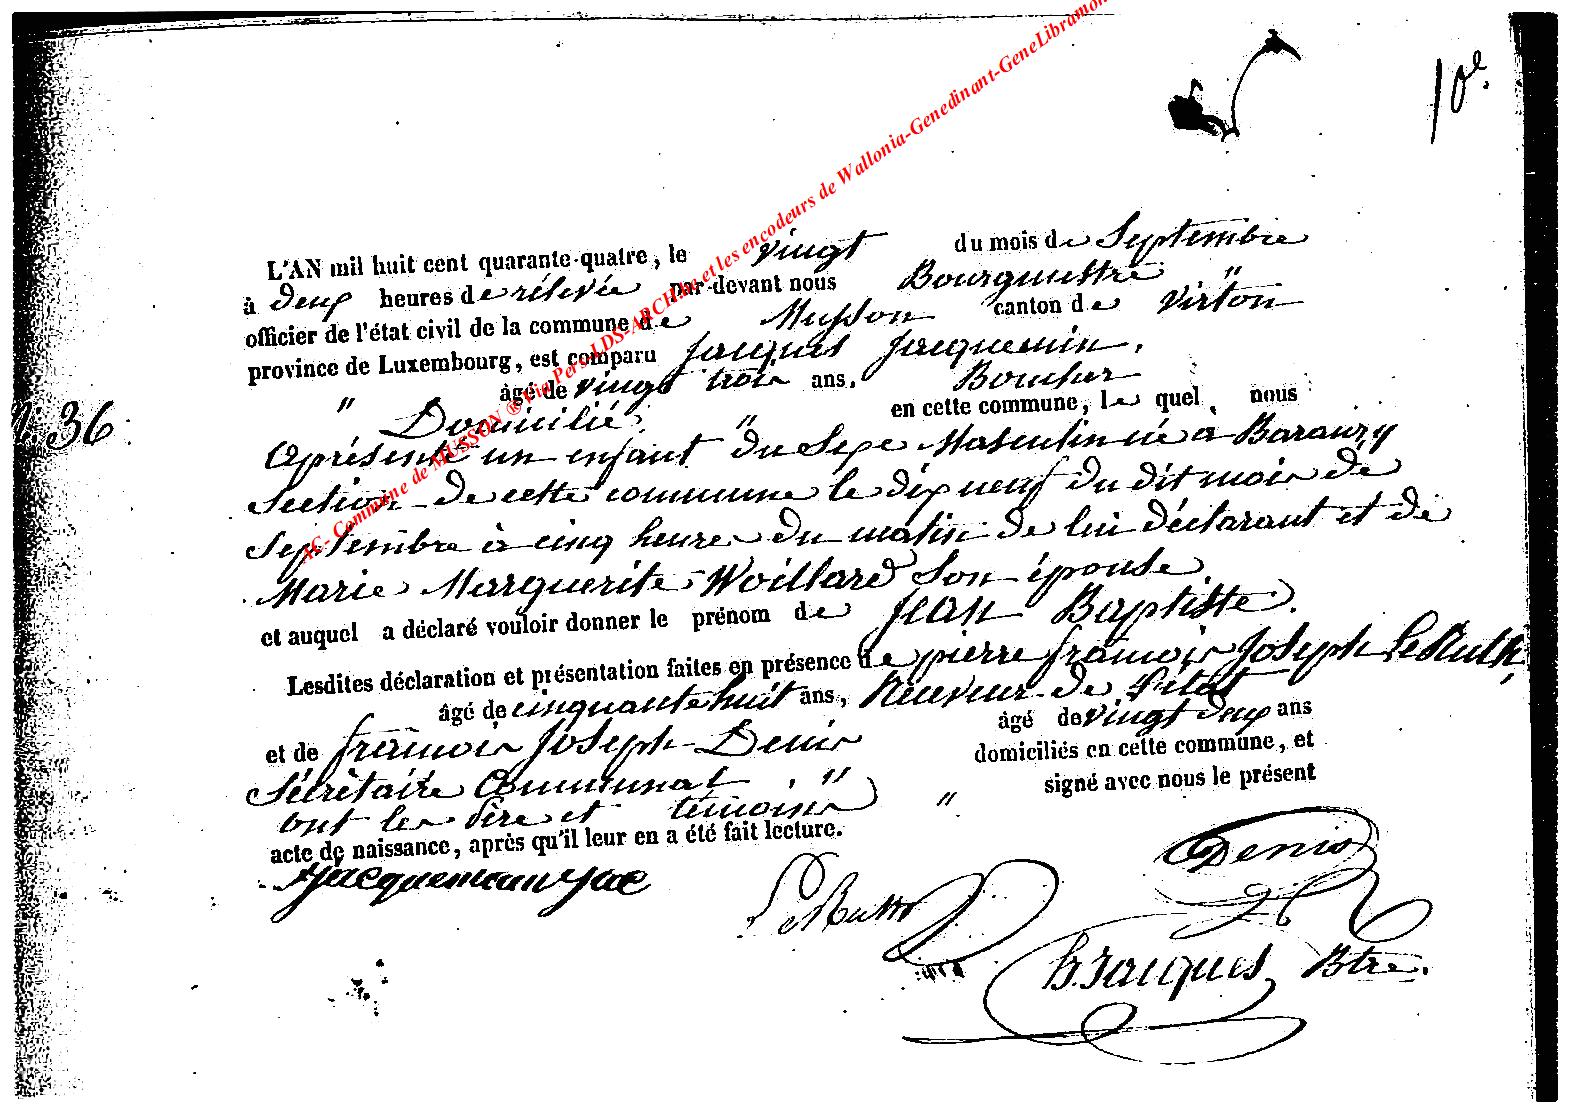 10e.
AC- Commune de MUSSON ® Via Pers LDS-ARCH.be et les encodeurs de Wallonia-Genedinant-GeneLibramon
L'AN mil huit cent quarante-quatre, le vingt du mois de Septembre
à deux heures de rélevée par-devant nous Bourgmestre "
officier de l'état civil de la commune de Musson canton de Virton
province de Luxembourg, est comparu Jacques Jacquemin.
âgé de vingt trois ans. Boucher
" Domicilié. " en cette commune, le quel, nous
N. 36
Aprésenté un enfant du Sexe Masculin né a Baranzy
Section de cette commune le dix neuf du dit mois de
Septembre à cinq heures du matin de lui déclarant et de
Marie Marguerite Woillard Son épouse
et auquel a déclaré vouloir donner le prénom de Jean Baptiste.
Lesdites déclaration et présentation faites en présence de pierre francois Joseph LeRuth,
âgé de cinquante huit ans, Réceveur de l'état
et de francois Joseph Denis âgé de vingt deux ans
Sécrétaire Communal. " domiciliés en cette commune, et
ont les Père et témoins " signé avec nous le présent
acte de naissance, après qu'il leur en a été fait lecture.
Jacquemin Jac
LeRuth
Denis
h. Jacques Btre.